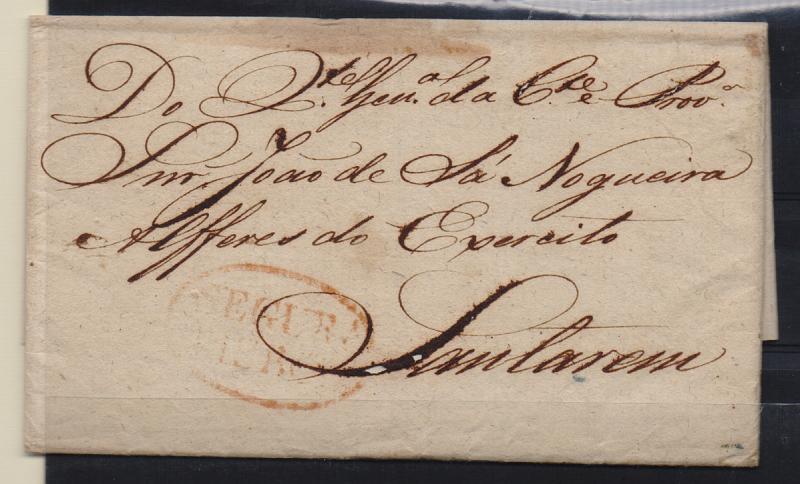 Do Q.tel Gen.al da C.te e Prov.a
Snr. João de Sá Nogueira
Alfferes do Exercito
Santarem
SEGURA